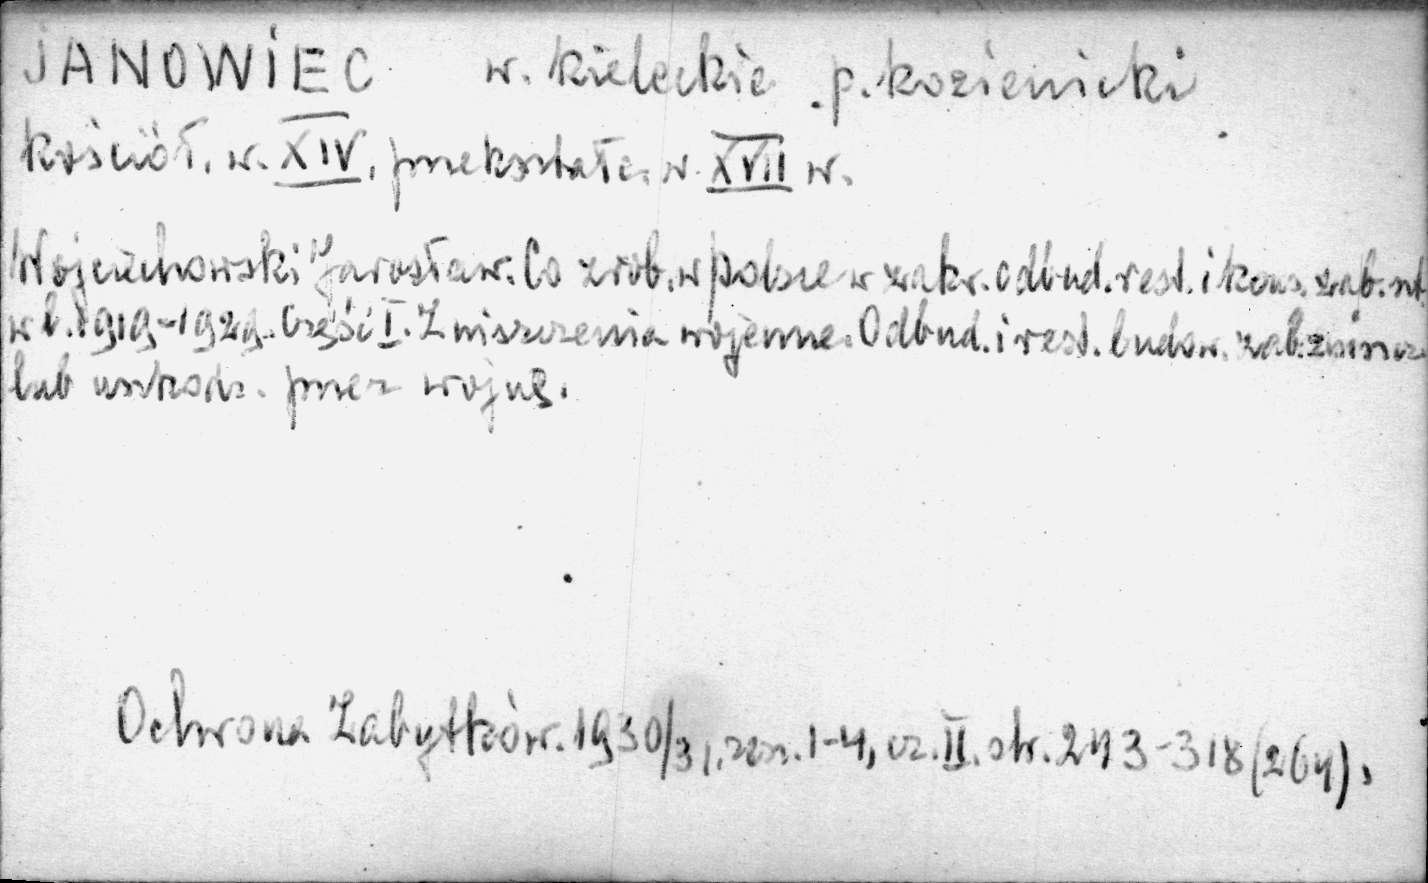 JANOWIEC w. kieleckie p. kozienicki
kościół. w. XIV, przekształc. w XVII w.
Wojciechowski Jarosław. Co zrob. w Polsce w zakr. odbud. rest. i kons. zab. szt
w l. 1919-1929. Część I. Zniszczenia wojenne. Odbud. i rest. budow. zab. zniszcz
lub uszkodz. przez wojnę.
Ochrona Zabytków. 1930/31, zesz. 1-4, cz. II. str. 243-318 (264).